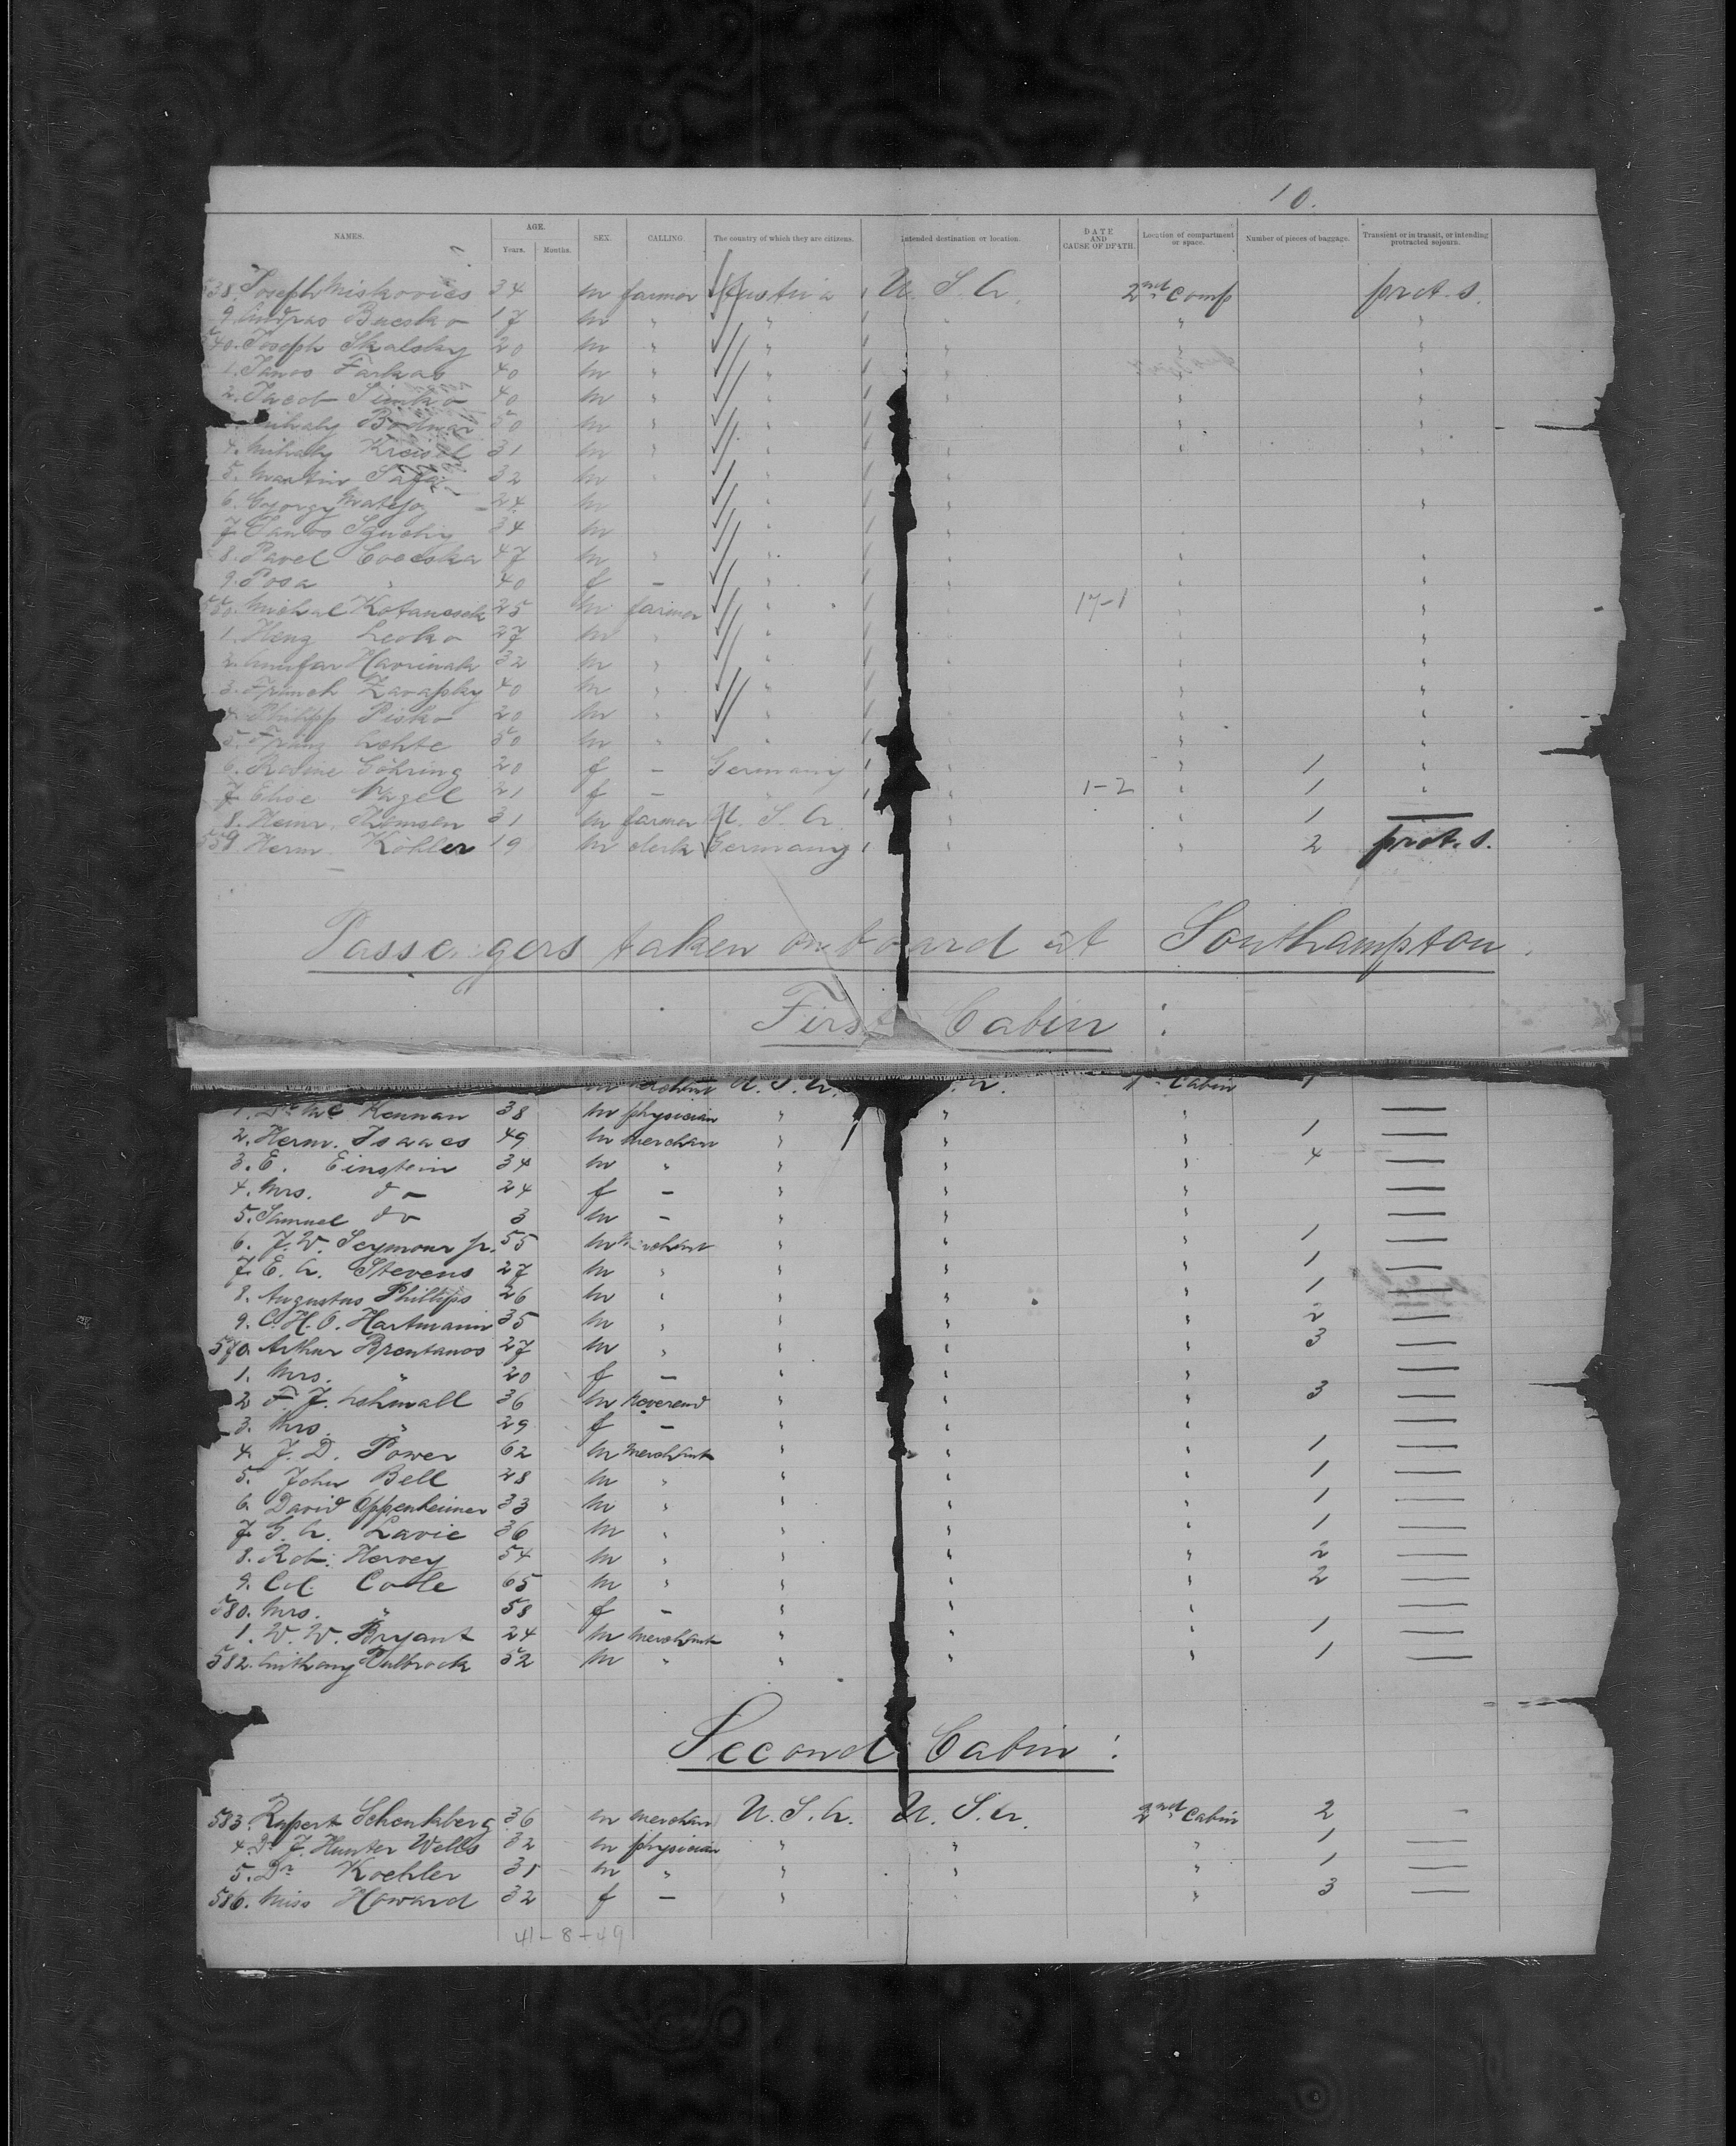 10.
NAMES. AGE. Years. Months. SEX. CALLING. The country of which they are citizens. Intended destination or location. DATE AND CAUSE OF DEATH. Location of compartment or space. Number of pieces of baggage. Transient or in transit, or intending protracted sojourn.
538. Joseph Miskovics 34 m farmer Austria U. S. A. 2nd Comp prot. s.
9. Andras Bucsko 17 m " " " " "
540. Joseph Skalsky 20 m " " " " "
1. Janos Farkas 40 m " " " " "
2. Jacob Simko 40 m " " " " "
Mihaly Bodnar 50 m " " " " "
4. Mihaly Kreisel 31 m " " " " "
5. Martin 32 m " " "
6. Gyorgy Matejo 24 m " " "
7. Janos 34 m "
8. Pavel 47 m " " " " "
9. Rosa " 40 f – " " " "
550. Michal 25 m farmer " " 17-1 " "
1. Leoko 27 m " " " " "
2. Havrinak 32 m " " " " "
3. 40 m " " " " "
4. Philipp Pisko 20 m " " " " "
5. Franz 50 m " " " " "
6. Göhring 20 f – Germany " " 1 "
7. Elise Nagel 21 f – " " 1-2 " 1 "
8. Heinr. Thomsen 31 m farmer U. S. A. " 1 —
559. Herm. Köhler 19 m clerk Germany " 2 prot. s.
Passengers taken on board at Southampton.
First Cabin:
m U. S. A. A. 1st Cabin 1
1. Dr. Mc Kennan 38 m physician " " " —
2. Herm. Isaacs 49 m merchan " " " 1 —
3. E. Einstein 34 m " " " " 4 —
4. Mrs. do 24 f – " " " —
5. Samuel do 3 m – " " " —
6. J. W. Seymour jr. 55 m merchant " " " 1 —
7. E. A. Stevens 27 m " " " " 1 —
8. Augustus Phillips 26 m " " " " 1 —
9. C. H. O. Hartmann 35 m " " " " 2 —
570. Arthur Brentanos 27 m " " " " 3 —
1. Mrs. " 20 f – " " " —
2 F. J. 36 m Reverend " " " 3 —
3. Mrs. " 29 f – " " " —
4. J. D. Power 62 m merchant " " " 1 —
5. John Bell 28 m " " " " 1 —
6. David Oppenheimer 33 m " " " " 1 —
7. G. A. Lavie 36 m " " " " 1 —
8. Rob. Hervey 54 m " " " " 2 —
9. Col. Cole 65 m " " " " 2 —
580. Mrs. " 58 f – " " " —
1. W. W. Bryant 24 m merchant " " " 1 —
582. Anthony Pulbrook 52 m " " " " 1 —
Second Cabin:
583. Rupert Schenkberg 36 m merchan U. S. A. U. S. A. 2nd Cabin 2 -
4. Dr. J. Hunter Wells 32 m physician " " " 1 —
5. Dr. Koehler 31 m " " " " 1 —
586. Miss Howard 32 f – " " 3 —
41-8+49